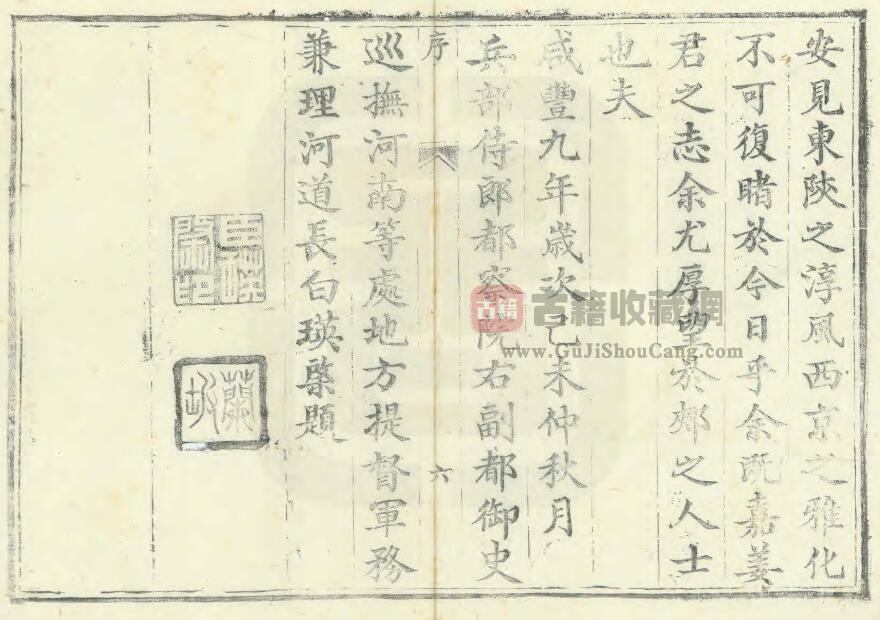 安見東陜之淳風西京之雅化
不可復睹於今日乎余既嘉姜
君之志余尤厚望於郟之人士
也夫
咸豐九年歲次己未仲秋月
兵部侍郎都察院右副都御史
序
六
巡撫河南等處地方提督軍務
兼理河道長白瑛棨題
蘭坡
古籍
古籍收藏網
www.GuJiShouCang.com